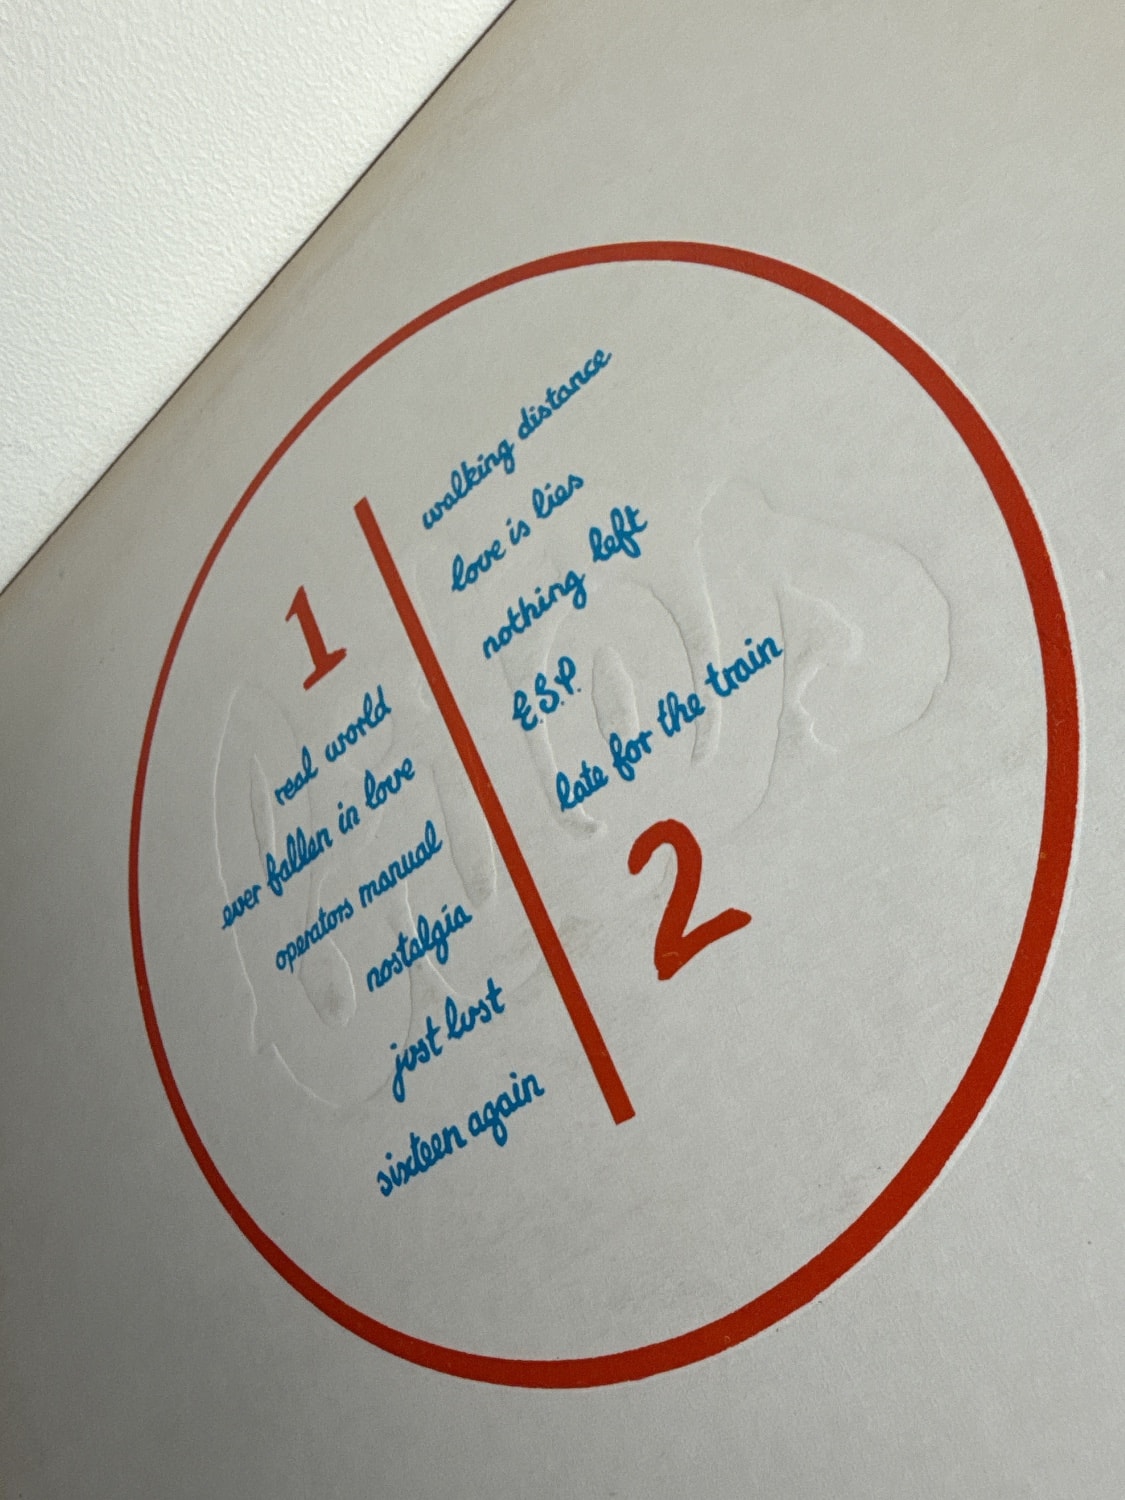 1
real world
ever fallen in love
operators manual
nostalgia
just lust
sixteen again
walking distance
love is lies
nothing left
E.S.P.
late for the train
2